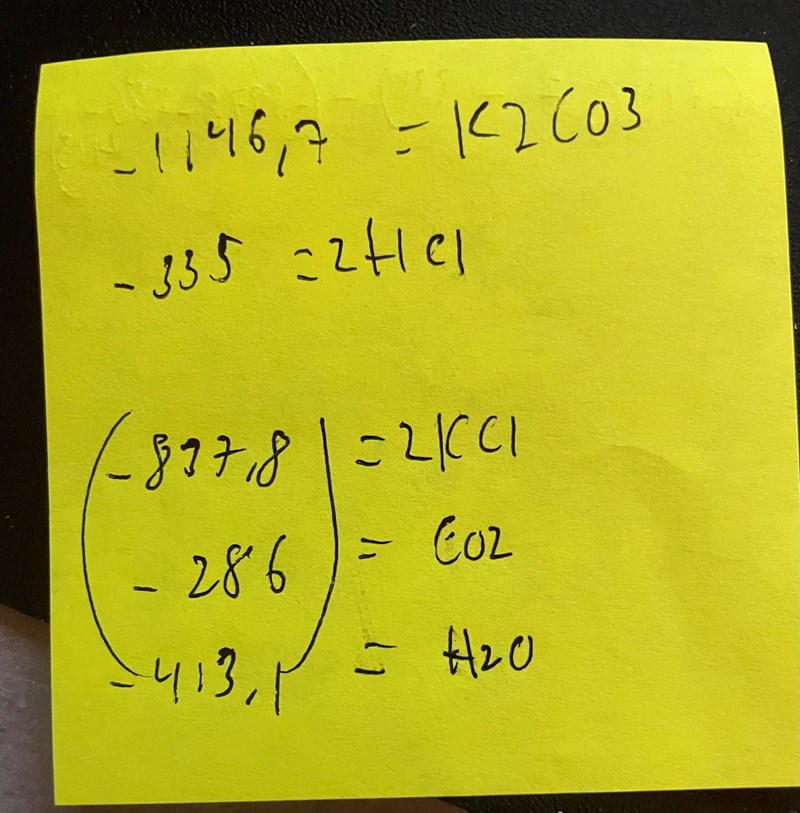 -1146,7 = K2CO3
-335 = 2HCl
-837,8 = 2KCl
-286 = CO2
-413,1 = H2O